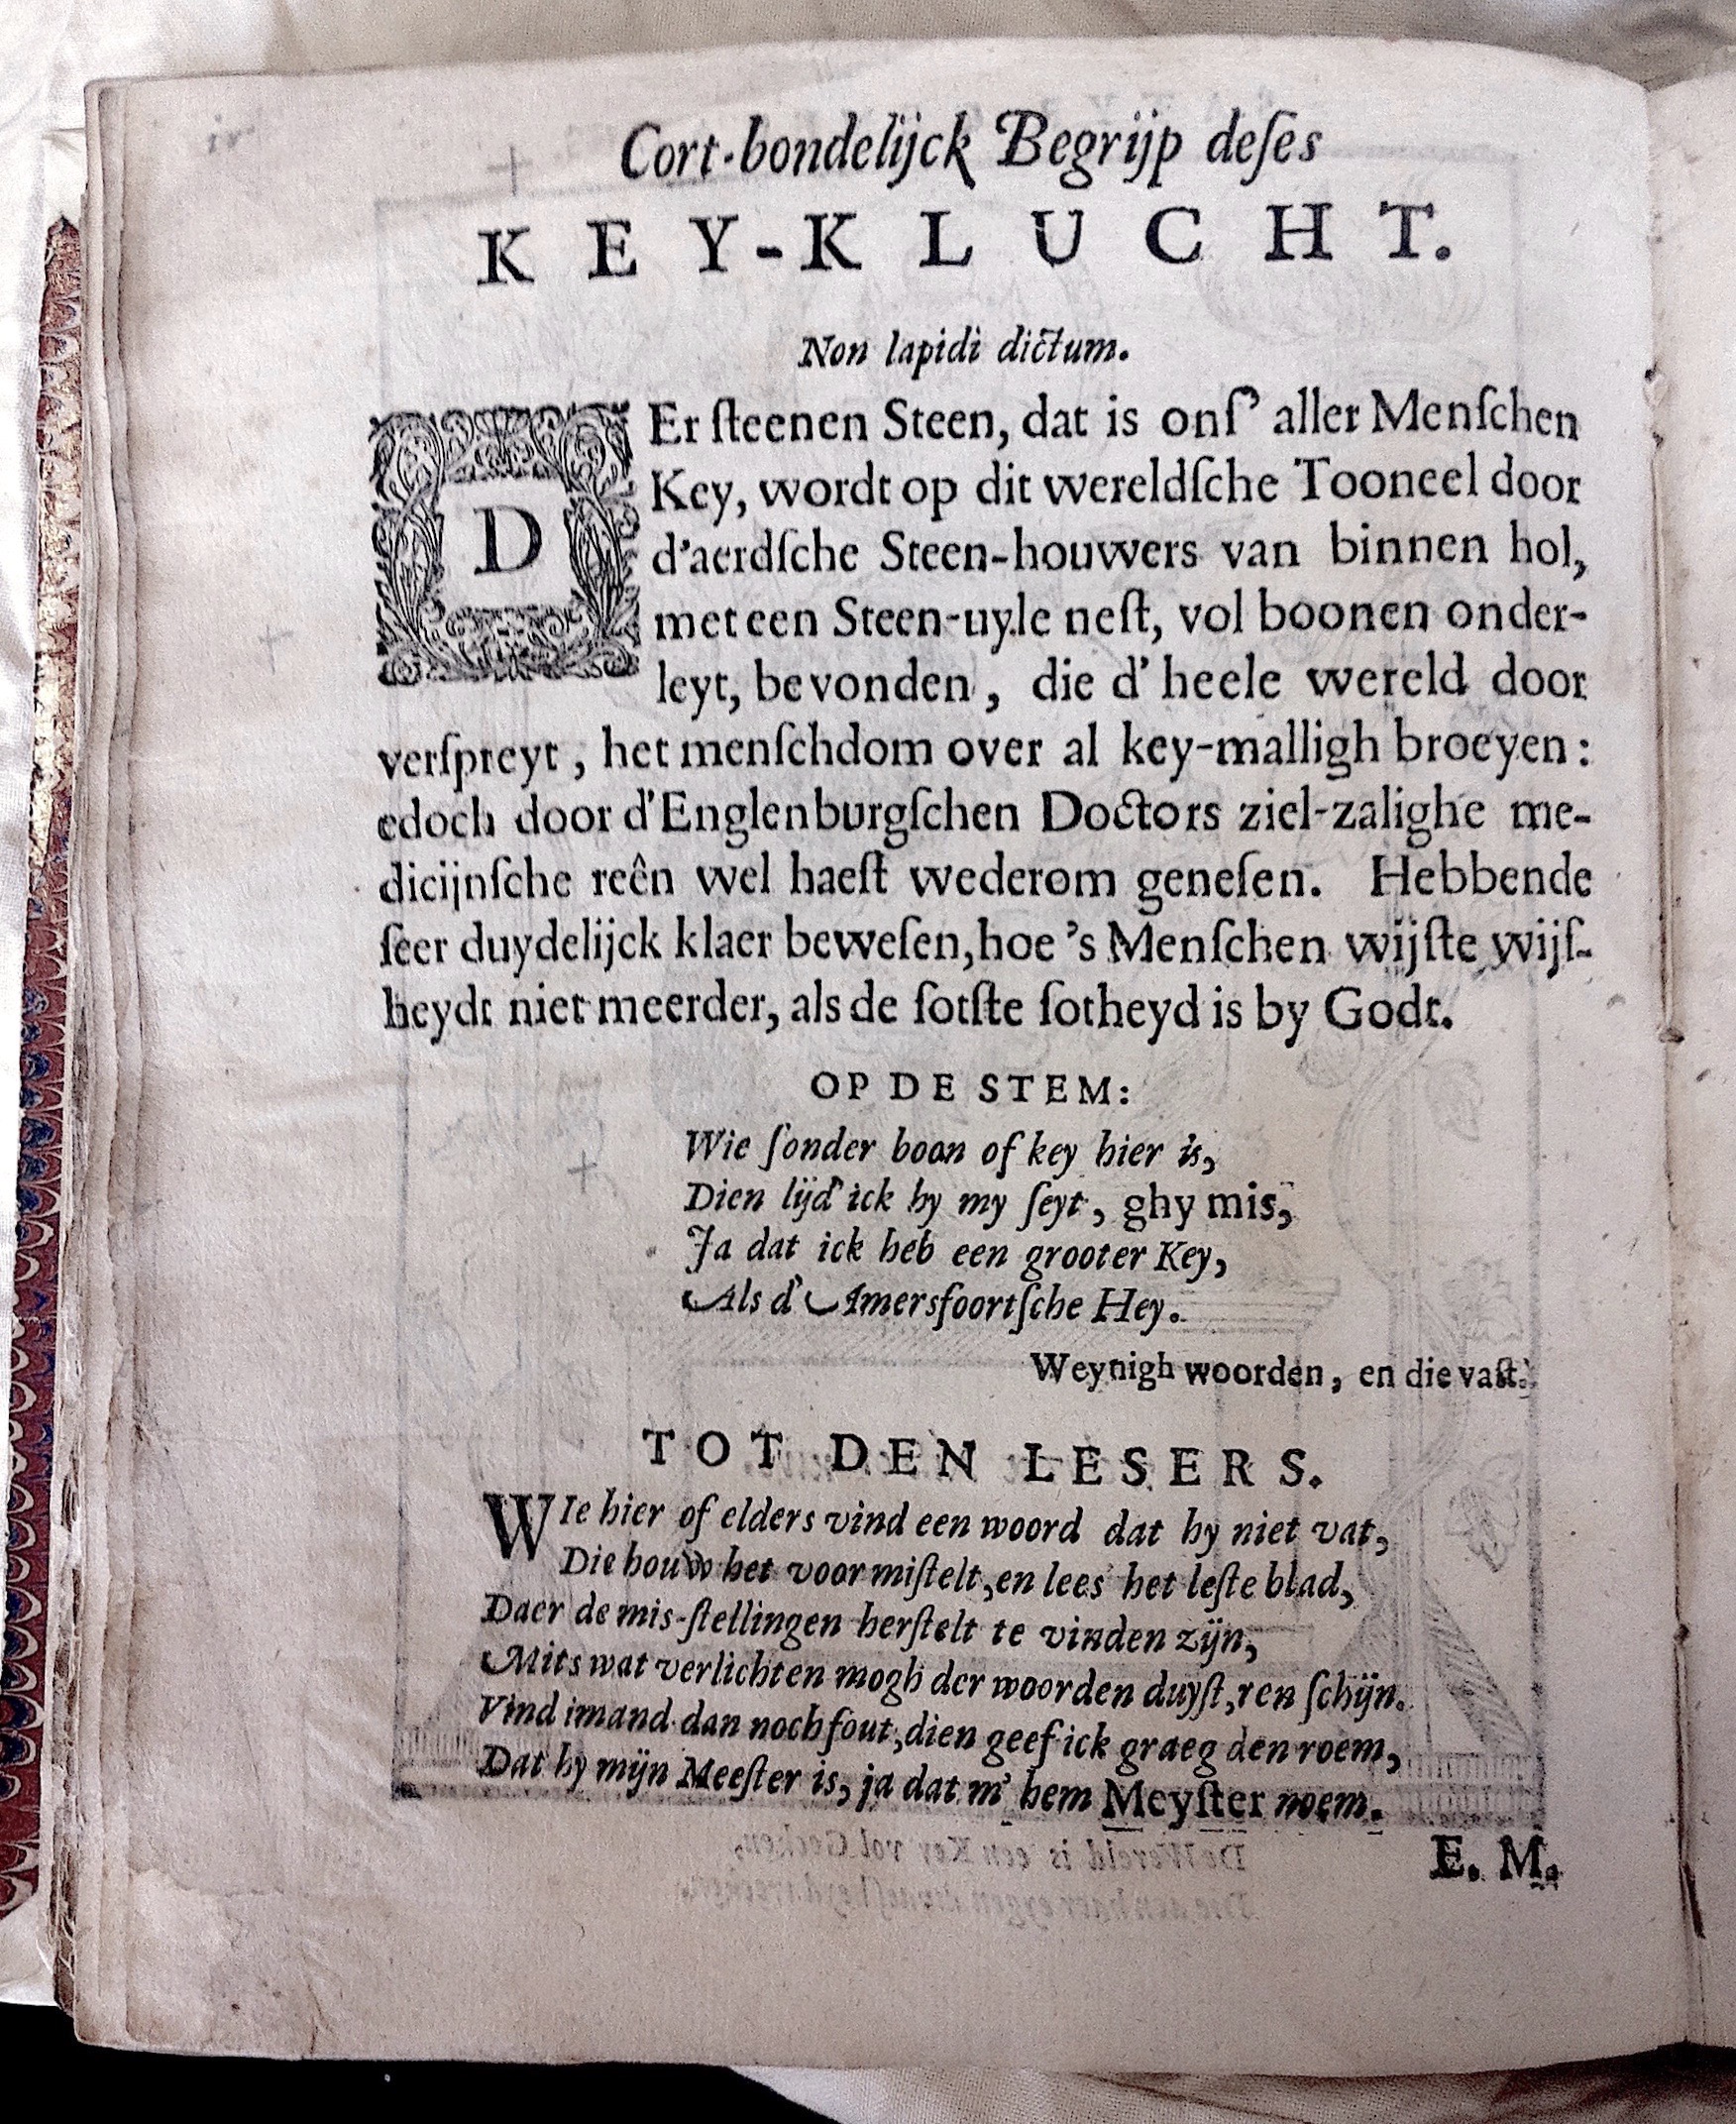 Cort-bondelijck Begrijp deſes
KEY-KLUCHT.
Non lapidi dictum.
DEr ſteenen Steen, dat is onſ' aller Menſchen
Key, wordt op dit wereldſche Tooneel door
d'aerdſche Steen-houwers van binnen hol,
met een Steen-uyle neſt, vol boonen onder-
leyt, bevonden, die d'heele wereld door
verſpreyt, het menſchdom over al key-malligh broeyen:
edoch door d'Englenburgſchen Doctors ziel-zalighe me-
dicijnſche reên wel haeſt wederom geneſen. Hebbende
ſeer duydelijck klaer beweſen, hoe 's Menſchen wijſte wijſ-
heydt niet meerder, als de ſotſte ſotheyd is by Godt.
OP DE STEM:
Wie ſonder boon of key hier is,
Dien lijd' ick hy my ſeyt, ghy mis,
Ja dat ick heb een grooter Key,
Als d'Amersfoortſche Hey.
Weynigh woorden, en die vaſt.
TOT DEN LESERS.
WIe hier of elders vind een woord dat hy niet vat,
Die houw het voor miſtelt, en lees het leſte blad,
Daer de mis-ſtellingen herſtelt te vinden zijn,
Mits wat verlichten mogh der woorden duyſt,ren ſchijn.
Vind imand dan noch fout, dien geef ick graeg den roem,
Dat hy mijn Meeſter is, ja dat m' hem Meyſter noem.
E. M.